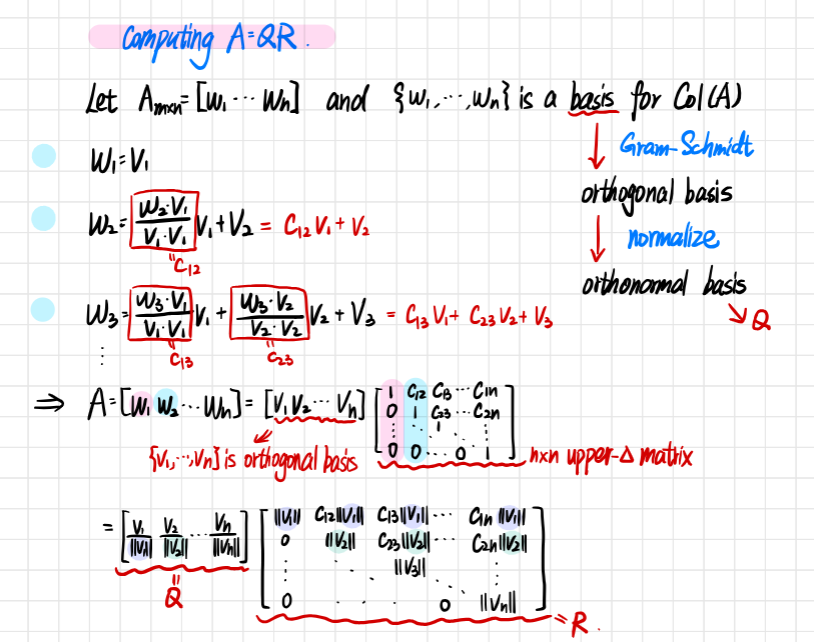 Computing A=QR.
Let A_{m×n}=[w₁ ⋯ wₙ] and {w₁,⋯,wₙ} is a basis for Col(A)
Gram-Schmidt
orthogonal basis
normalize
orthonormal basis
Q
w₁=v₁
w₂= (w₂·v₁)/(v₁·v₁) v₁+v₂ = C₁₂v₁+v₂
"C₁₂
w₃= (w₃·v₁)/(v₁·v₁) v₁ + (w₃·v₂)/(v₂·v₂) v₂ + v₃ = C₁₃v₁+ C₂₃v₂+v₃
"C₁₃ "C₂₃
⋮
⇒ A=[w₁ w₂ ⋯ wₙ] = [v₁ v₂ ⋯ vₙ]
1 C₁₂ C₁₃ ⋯ C₁ₙ
0 1 C₂₃ ⋯ C₂ₙ
⋮ ⋱ 1 ⋱ ⋮
0 0 ⋯ 0 1
{v₁,⋯,vₙ} is orthogonal basis
n×n upper-Δ matrix
= [v₁/||v₁|| v₂/||v₂|| ⋯ vₙ/||vₙ||]
" Q
||v₁|| C₁₂||v₁|| C₁₃||v₁|| ⋯ C₁ₙ||v₁||
0 ||v₂|| C₂₃||v₂|| ⋯ C₂ₙ||v₂||
⋮ ⋱ ||v₃|| ⋱ ⋮
0 ⋯ 0 ||vₙ||
= R.